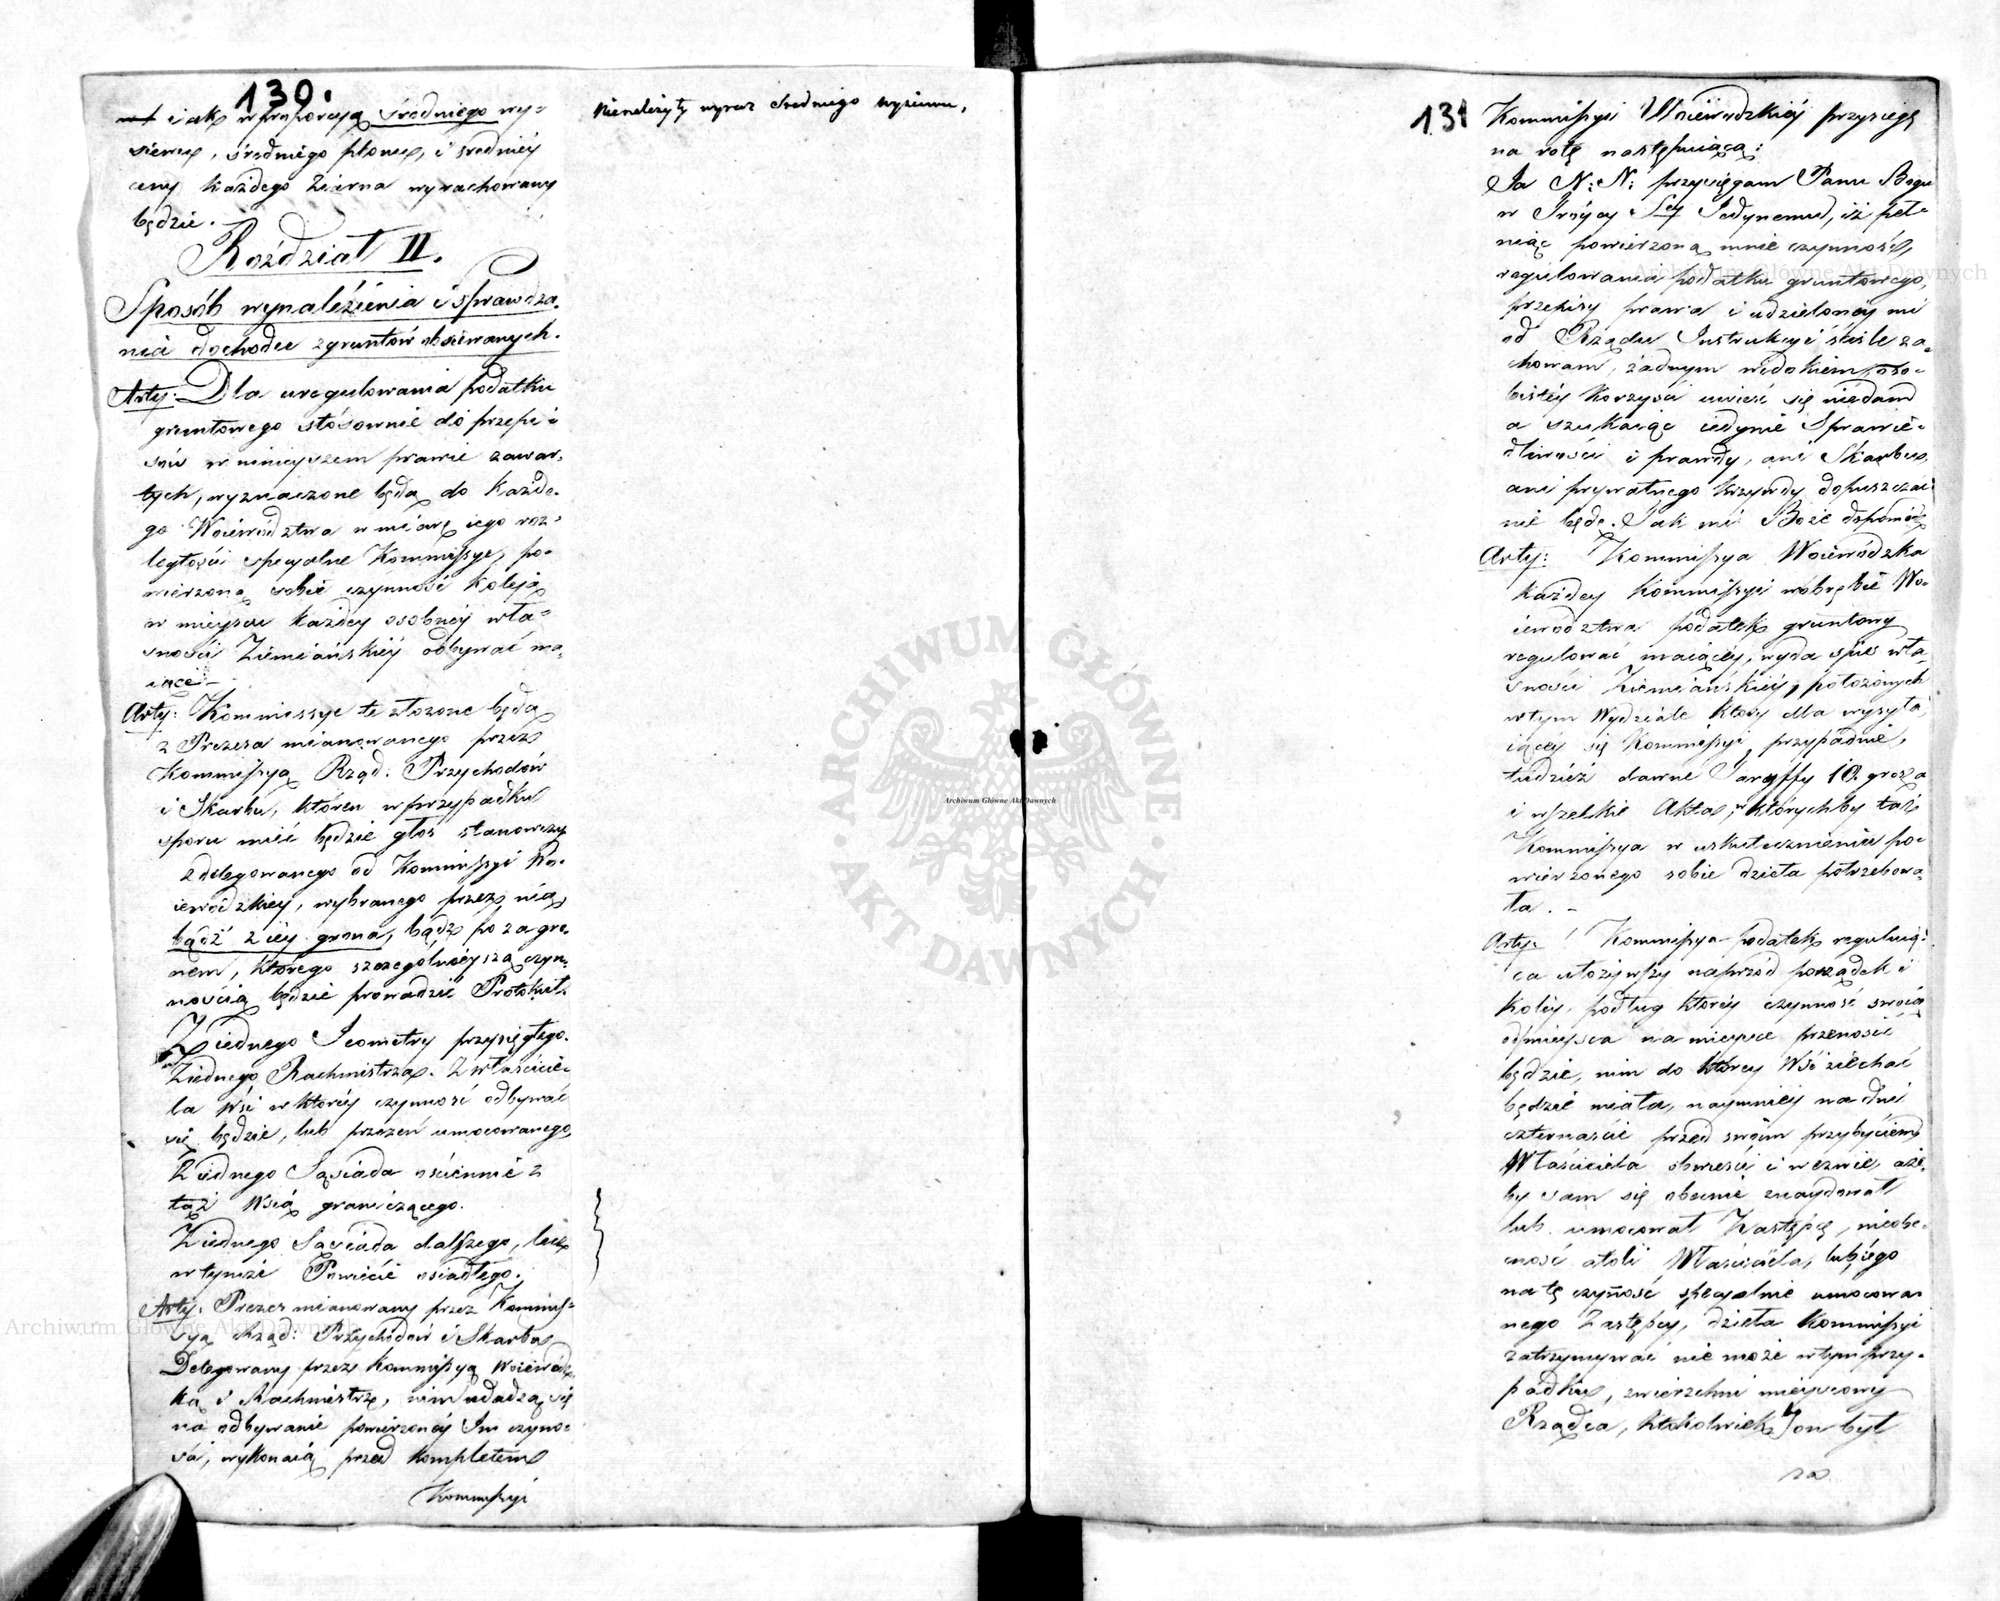 130.
i iak w proporcyą średniego wy=
siewu, średniego plonu, i średniéy
ceny każdego Ziarna wyrachowany
będzie.
Nienależyty wyraz średniego wysiewu,
Rozdział II.
Sposób wynaleźienia i sprawdza-
nia dochodu z gruntów obsiewanych.
Arty: Dla uregulowania podatku
gruntowego stósownie do przepi=
sów w ninieyszem prawie zawar-
tych, wyznaczone będą do każde-
go Woiewództwa w miarę iego roz=
ległości specyalne Kommissye, po-
wierzoną sobie czynność koleją
w mieyscu każdey osobnéy wła=
sności Ziemiańskiéy odbywać ma-
iące.
Arty: Kommissye te złożone będą
z Prezesa mianowanego przez
Kommissyą Rząd: Przychodów
i Skarbu, któren w przypadku
sporu mieć będzie głos stanowczy
z delegowanego od Kommissyi Wo-
iewódzkiey, wybranego przez nią,
bądź z iéy grona, bądź po za gro-
nem, którego szczególnieyszą czyn-
nością będzie prowadzić Protokuł.
Z iednego Jeometry przysięgłego.
Z iednego Rachmistrza. Z właścicie-
la Wsi w któréy czynność odbywać
się będzie, lub przezeń umocowanego
Z iednego Sąsiada ościennie z
tąż Wsią graniczącego.
Z iednego Sąsiada dalszego, lecz
w tymże Powiecie osiadłego.
Arty: Prezes mianowany przez Kommis=
syą Rząd: Przychodów i Skarbu
Delegowany przez Kommissyą Woiewódz-
ką i Rachmistrz, nim udadzą się
na odbywanie powierzonéy Im czynno-
ści, wykonaią przed kompletem
Kommissyi
131
Kommissyi Woiéwodzkiéy przysięgę
na rotę następuiącą:
Ja N: N: przysięgam Panu Bogu
w Tróycy Sey Jedynemu, iż peł-
niąc powierzoną mnie czynność,
regulowania podatku gruntowego,
przepisy prawa i udzielonéy mi
od Rządu Instrukcyi ściśle za-
chowam, żadnym widokiem oso-
bistéy korzyści uwieść się niedam
a szukaiąc iedynie Sprawie-
dliwości i prawdy, ani Skarbu,
ani prywatnego krzywdy dopuszczać
nie będę. Tak mi Boże dopomóż
Arty: Kommissya Woiewódzka
każdey Kommissyi w obrębie Wo-
iewództwa podatek gruntowy
regulować maiącéy, wyda spis wła-
sności Ziemiańskiéy, położonych
w tym Wydziale który dla wysyła-
iącéy się Kommissyi przypadnie,
tudzież dawne Taryffy 10. grosza
i wszelkie Akta, w których by taż
Kommissya w uskutecznieniu po-
wierzonego sobie dzieła potrzebowa-
ła. -
Arty: Kommissya podatek reguluią-
ca ułożywszy naprzód porządek i
koléy, podług któréy czynność swoią
od mieysca na mieysce przenosić
będzie, nim do któréy Wsi ziechać
będzie miała, naymniéy na dni
czternaście przed swoim przybyciem
Właściciela obwieści i wezwie, aże-
by sam się obecnie znaydował
lub umocował Zastępcę, nieobe-
cność atoli Właściciela, lub iego
na tę czynność specyalnie umocowa-
nego Zastępcy, dzieła Kommissyi
zatrzymywać nie może w tym przy-
padku, zwierzchni mieyscowy
Rządca, ktokolwiek by on był
za
Archiwum Główne Akt Dawnych
Archiwum Główne Akt Dawnych
Archiwum Główne Akt Dawnych
ARCHIWUM GŁÓWNE AKT DAWNYCH